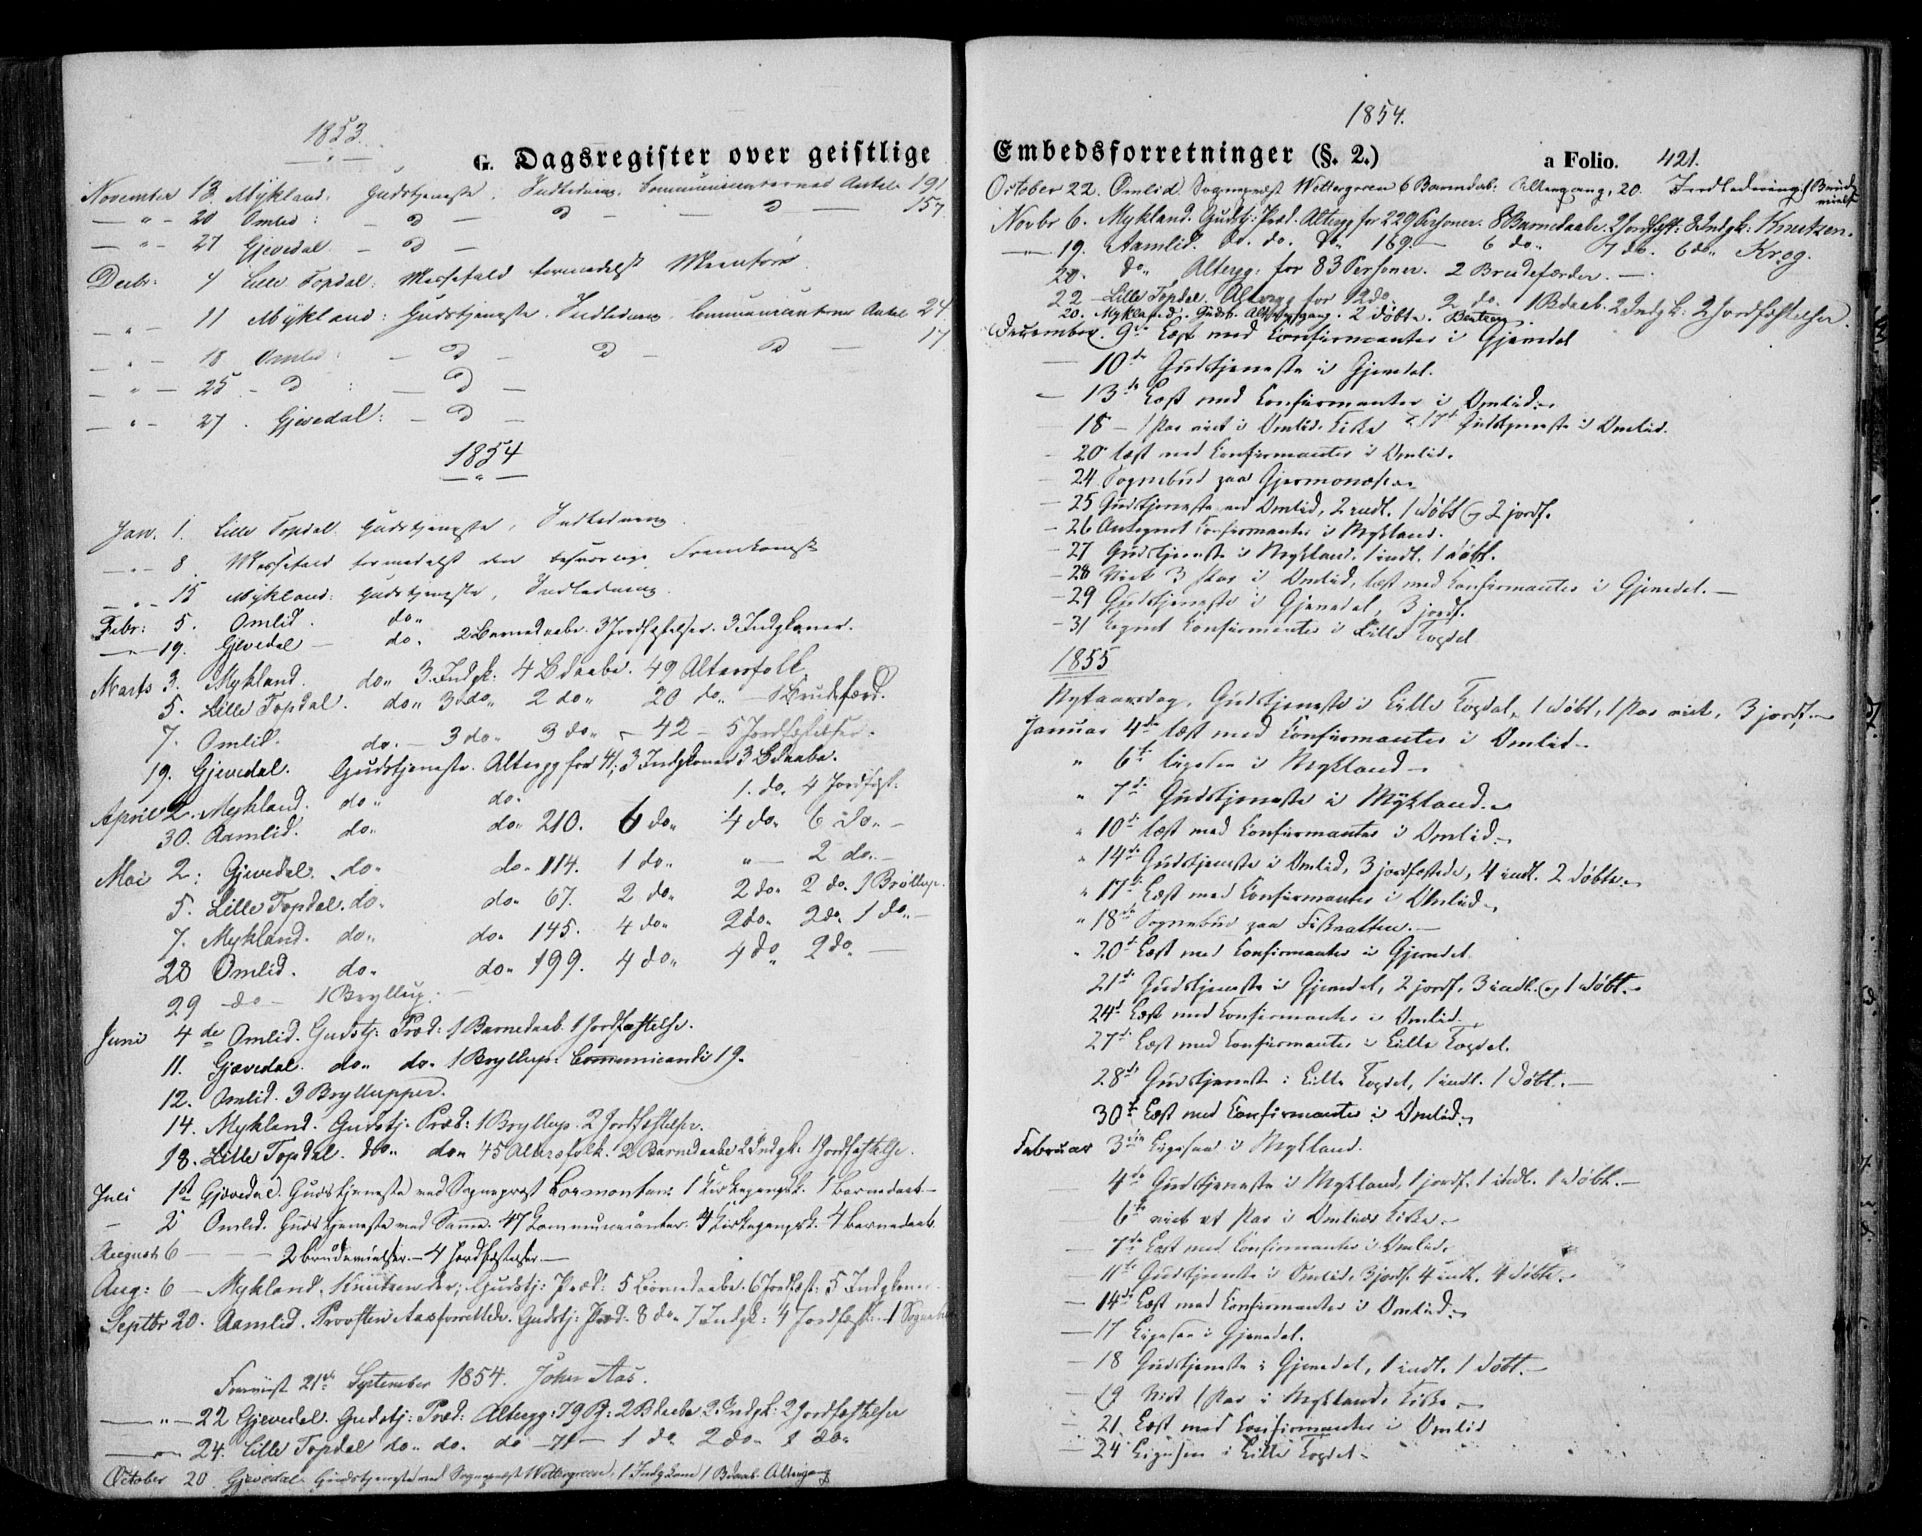 1853.
G. Dagsregister over geistlige
November 13. Mykland. Gudstjeneste, Indledning, Communicanternes Antal 191
— " — 20 Omlid: — d — d — d — 157
— " — 27 Gjevedal — d —
Decbr: 4 Lille Topdal: Messefald formedelst
— " — 11 Mykland: Gudstjeneste, Indledning, Communicanternes Antal 24
— " — 18 Omlid: — d — d — d — 17
— " — 25 — d : — d —
— " — 27. Gjevedal: — d —
1854
Jan. 1. Lille Topdal. Gudstjeneste, Indledning
— " — 8 Messefald formedelst den
— " — 15 Mykland: Gudstjeneste, Indledning
Febr: 5. Omlid. do"
— " — 19. Gjevedal — do. 2 Barnedaabe. 3 Jordfæstelser. 3 Indgkoner.
Marts 3. Mykland. do" 3. Indgk: 4 Bdaabe. 49 Altersfolk
5. Lille Topdal. do" 3 do" 2 do" 20 do" — 1 Brudefærd.
7. Omlid. do. — 3 do" 3 do" — 42 — 5 Jordfæstelser.
19. Gjevedal. Gudstjeneste. Altergg for 41, 3 Indgkoner 3 Bdaabe.
April 2. Mykland. do" do" 1. do. 4 Jordfæst.
30. Aamlid. do" do" 210. 6 do" 4 do" 6 do" —
Mai 2: Gjevedal. do" do" 114. 1 do" " — 2 do. —
5. Lille Topdal. do" do" 67. 2 do" 2 do" 2 do. 1 Bröllup.
7. Mykland. do" do" 145. 4 do" 2 do" 2 do" 1 do" —
28 Omlid. do" do" 199. 4 do" 4 do" 2 do" —
29 — do — 1 Bryllup. —
Juni 4de Omlid. Gudstj: Præd: 1 Barnedaab. 1 Jordfæstelse.
11. Gjævedal. do" do" 1 Bryllup. Communicandi 19.
12. Omlid. 3 Bryllupper.
14. Mykland. Gudstj. Præd: 1 Bryllup. 2 Jordfæstelser.
18. Lille Topdal. do" do" 45 Altersfolk. 2 Barnedaabe 2 Indgk: 1 Jordfæstelse.
Juli 1st Gjævedal. Gudstjeneste ved Sognepræst Lormontan: 1 Kirkegangsk. 1 Barnedaab —
— 2 Omlid. Gudstjeneste ved Samme. 47 Kommunicanter. 4 Kirkegangsk. 4 Barnedaab.
August 6 — — 2 Brudevielser. — 4 Jordfæstelser. —
Aug: 6 — Mykland. Gudstj: Præd: 5 Barnedaabe. 6 Jordfæst: 5 Indgkoner.
Septbr 20. Aamlid. Provsten Aas forrettede. Gudstj: Præd: 8 do" 7 Indgk: 4 Jordfæst: — 1
21de September 1854. John Aas.
— " — 22 Gjevedal. Gudstj: Præd: Altergg: 79 P: 2 Bdaabe 2 Indgk: 2 Jordfæstelser
— " — 24. Lille Topdal do" do. do — 71 — 1 do 2 do" 1 do"
October 20 Gjevedal. Gudstjeneste ved Sognepræst Wettergreen, 1 Indgkone 1 Bdaab. Altergang
1854.
Embedsforretninger (§. 2.) a Folio. 421.
October 22. Omlid. Sognepræst Wettergreen 6 Barnedaab: Altergang, 20. Indledning, 1 Brudevielse
Novbr 6. Mykland. Gudstj: Præd. Altergg for 229 Personer. 8 Barnedaabe. 2 Jordfæst: 8 Indgk. Knutzen.
— " — 19. Aamlid. do. do. do" 169 — 6 do" 7 do. 6 do" Krog.
20. do" Altergg: for 83 Personer. 2 Brudefærder. —
22 Lille Topdal. Altergg for 12 do. 2 do. 1 Bdaab. 2 Indgk: 2 Jordfæstelser.
20. Mykland. Gudst. Altergang. 2 döbte.
December. 9de Læst med Confirmanter i Gjevedal
— 10de Gudstjeneste i Gjevedal.
— 13de Læst med Confirmanter i Omlid. —
— 18 — 1 Par viet i Omlids Kirke 17de Gudstjeneste i Omlid.
— 20 læst med Confirmanter i Omlid.
— 24 Sognebud paa
— 25 Gudstjeneste ved Omlid, 2 indl. 1 döbt og 2 jordf.
— 26 Antegnet Confirmanter i Mykland.
— 27 Gudstjeneste i Mykland. 1 indl. 1 döbt.
— 28 Viet 3 Par i Omlid, læst med Confirmanter i Gjevedal. —
— 29 Gudstjeneste i Gjevedal, 3 jordf.
— 31 Confirmanter i Lille Topdal
1855
Nytaarsdag, Gudstjeneste i Lille Topdal, 1 döbt, 1 Par viet, 3 jordf. —
Januar 4de læst med Confirmanter i Omlid —
" 6te ligesaa i Mykland —
" 7de Gudstjeneste i Mykland. —
" 10de læst med Confirmanter i Omlid —
" 14de Gudstjeneste i Omlid, 3 jordfæstede, 4 indl. 2 döbte. —
" 17de Læst med Confirmanter i Omlid —
" 18de Sognebud paa
" 20de Læst med Confirmanter i Gjevedal
21de Gudstjeneste i Gjevedal, 2 jordf. 3 indl. og 1 döbt. —
24de Læst med Confirmanter i Omlid.
27de Læst med Confirmanter i Lille Topdal.
28de Gudstjeneste i Lille Topdal, 1 indl. 1 döbt. —
30te Læst med Confirmanter i Omlid. —
Februar 3die Ligesaa i Mykland.
— 4de Gudstjeneste i Mykland, 1 jordf. 1 indl. 1 döbt. —
6te viet et Par i Omlids Kirke. —
— 7de Læst med Confirmanter i Omlid.
— 11te Gudstjeneste i Omlid, 3 jordf. 4 indl. 4 döbte. —
— 14de Læst med Confirmanter i Omlid. —
— 17 Ligesaa i Gjevedal.
— 18 Gudstjeneste i Gjevedal, 1 indl. 1 döbt. —
— 19 Viet 1 Par i Myklands Kirke —
— 21. Læst med Confirmanter i Omlid
— 24 Ligesaa i Lille Topdal —